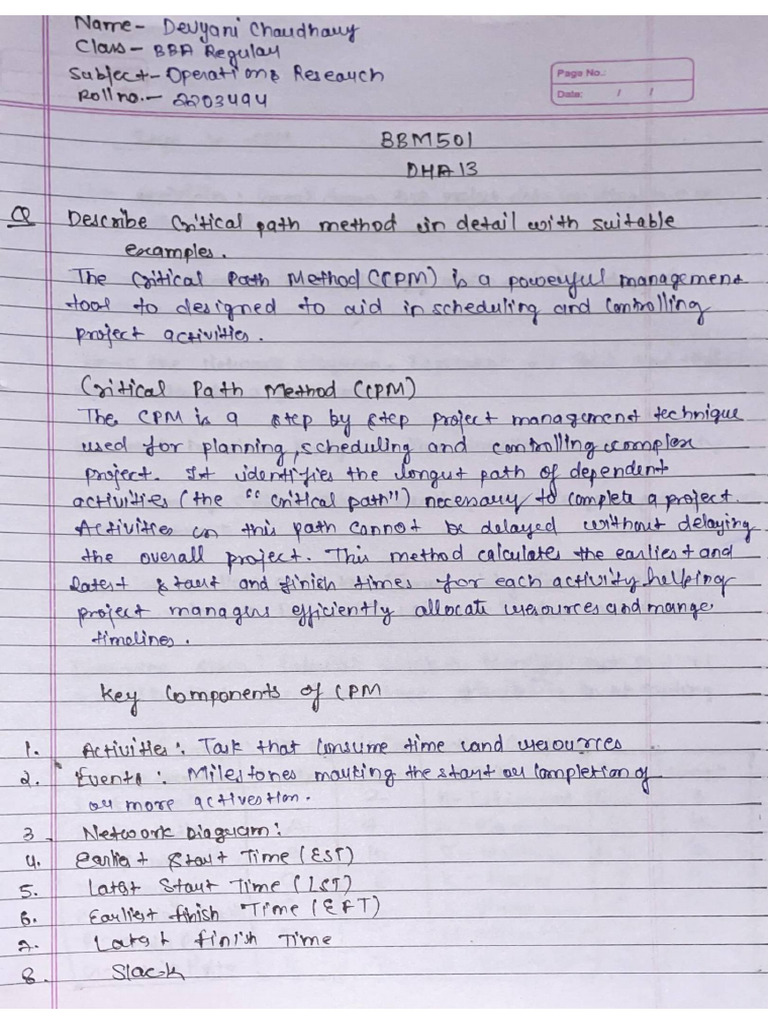 Name- Devyani Chaudhary
Class- BBA Regular
Subject- Operations Research
Roll no.- 2203494
Page No.:
Date: / /
BBM501
DHA 13
Q Describe Critical path method in detail with suitable
examples.
The Critical Path Method (CPM) is a powerful management
tool to designed to aid in scheduling and controlling
project activities.
Critical Path Method (CPM)
The CPM is a step by step project management technique
used for planning, scheduling and controlling complex
project. It identifies the longest path of dependent
activities (the "critical path") necessary to complete a project.
Activities on this path cannot be delayed without delaying
the overall project. This method calculates the earliest and
latest start and finish times for each activity, helping
project managers efficiently allocate resources and mange
timelines.
Key Components of CPM
1. Activities: Task that consume time and resources
2. Events: Milestones marking the start or completion of
or more
3. Network Diagram:
4. Earliest Start Time (EST)
5. Latest Start Time (LST)
6. Earliest finish Time (EFT)
7. Latest finish Time
8. Slack